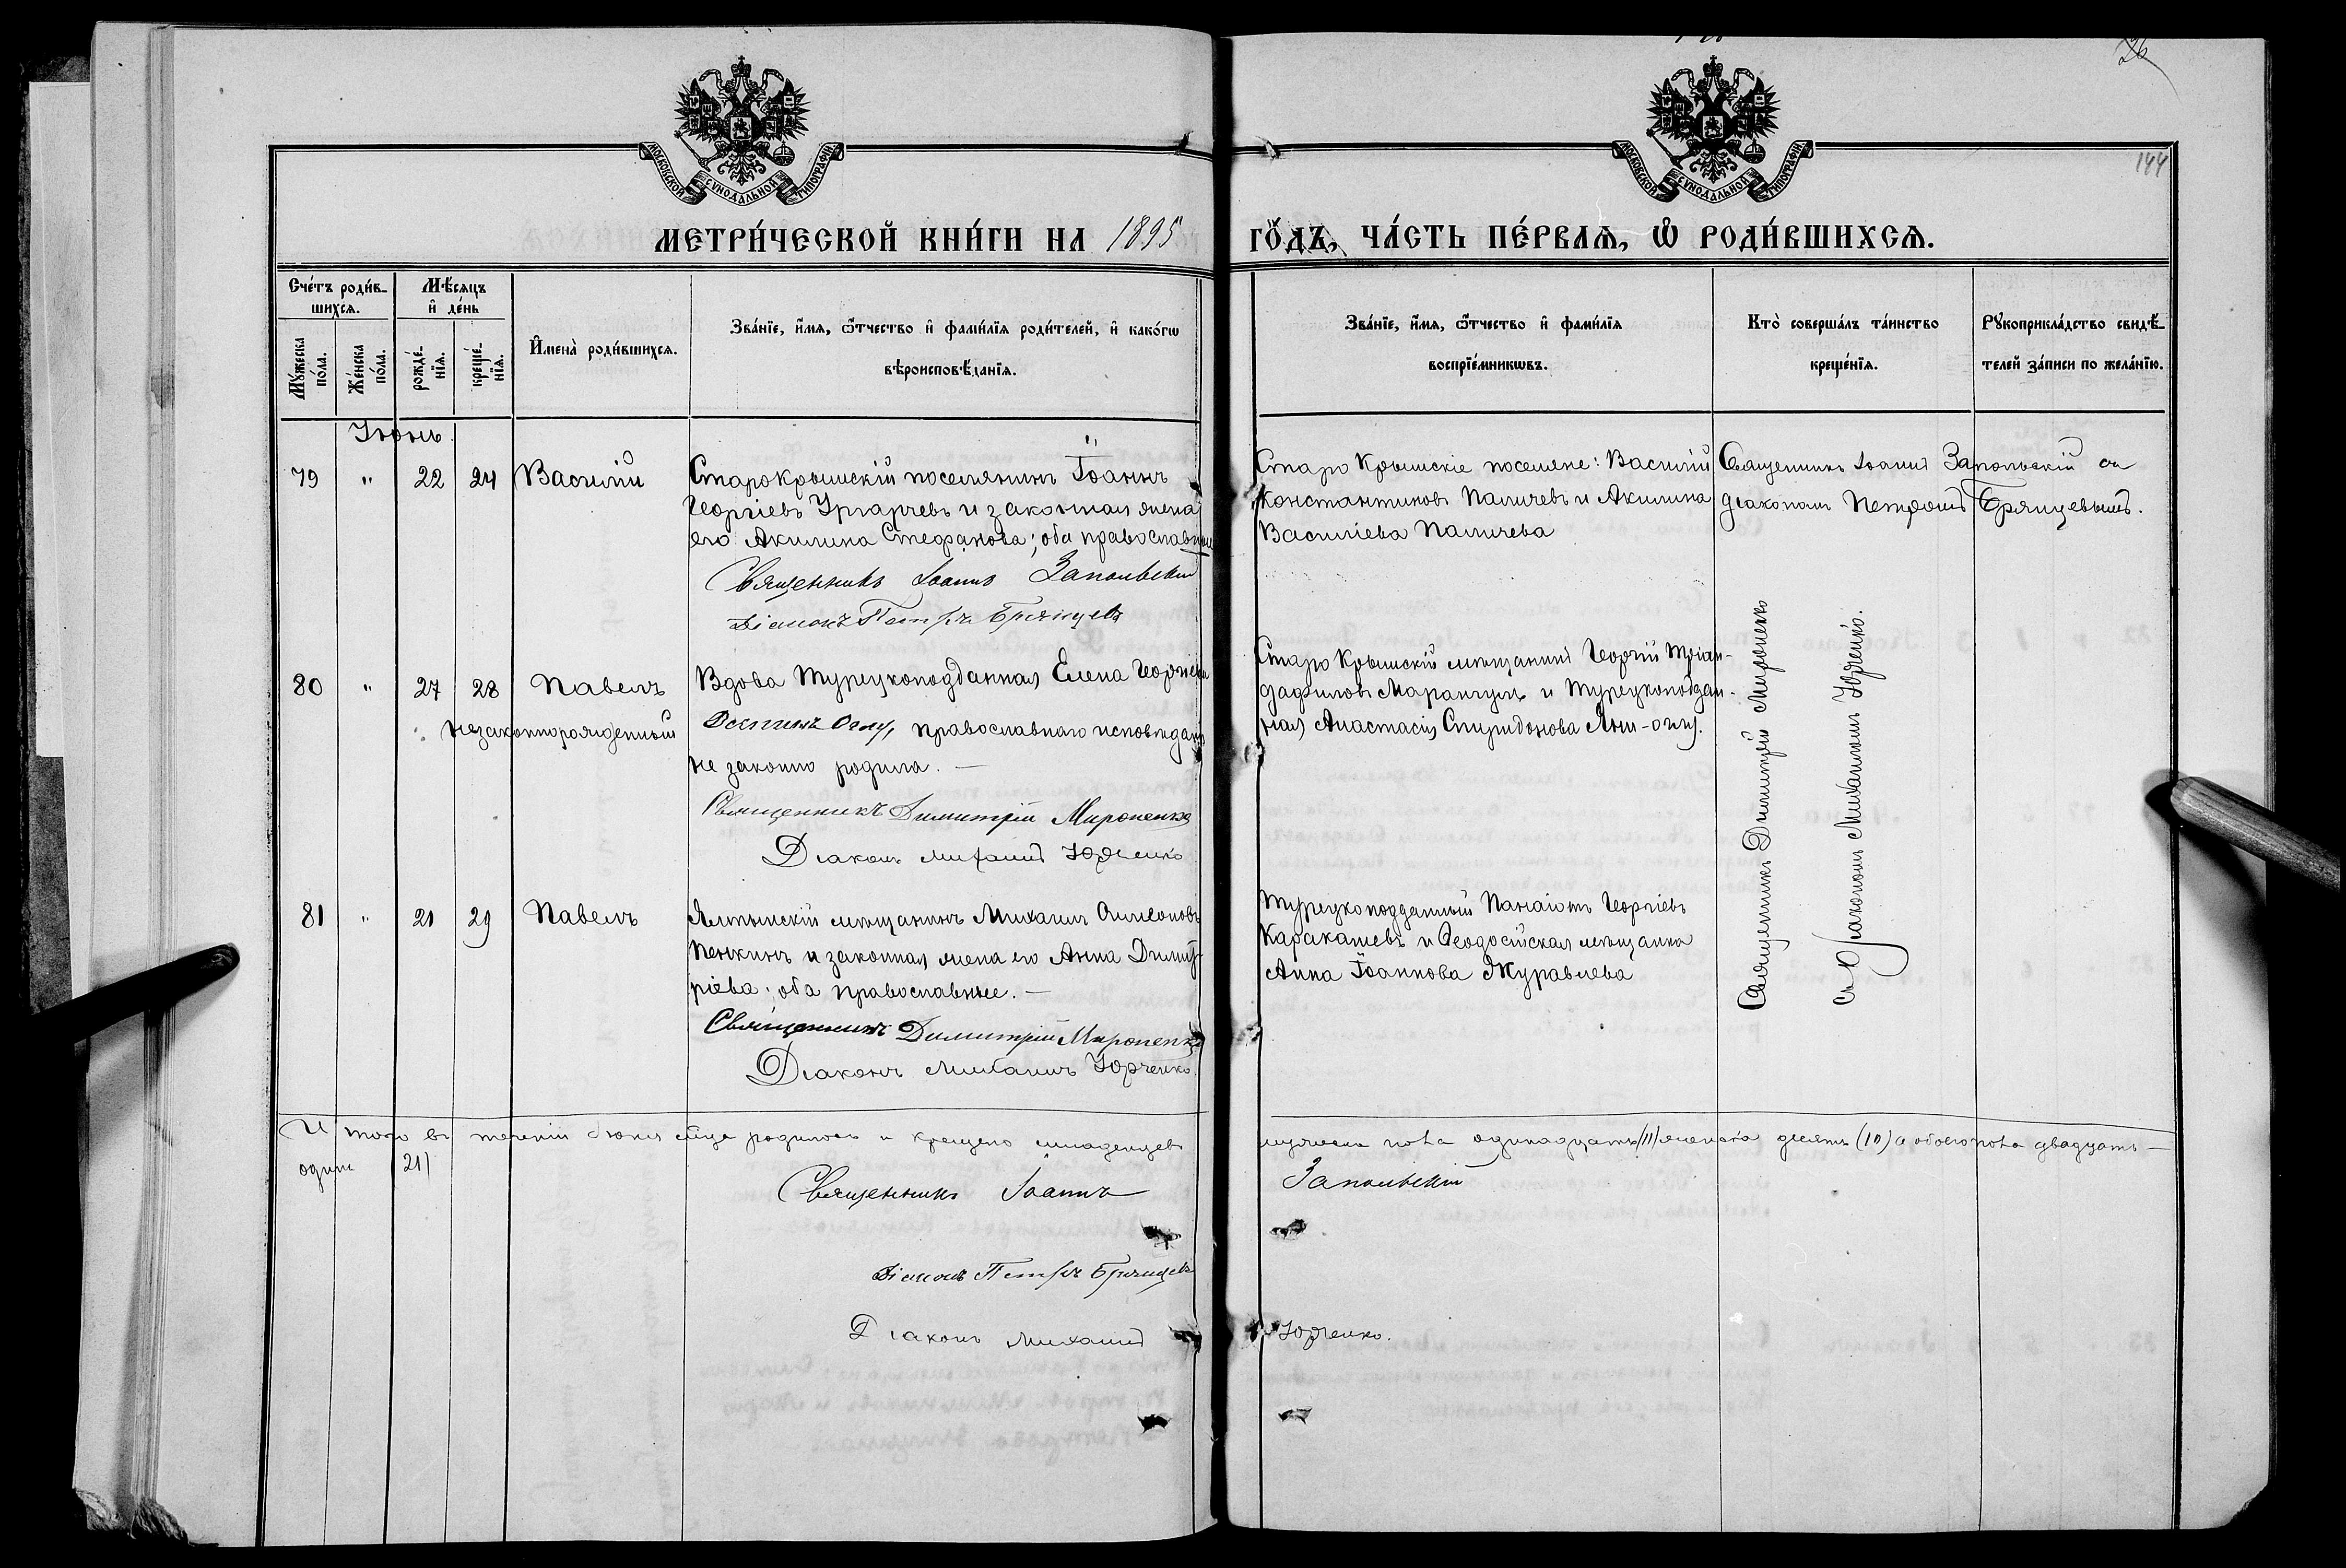 26
144
МОСКОВСКОЙ СѴНОДАЛЬНОЙ ТИПОГРАФІИ
МОСКОВСКОЙ СѴНОДАЛЬНОЙ ТИПОГРАФІИ
МЕТРИ́ЧЕСКОЙ КНИ́ГИ НА 1895 ГО́ДЪ, ЧА́СТЬ ПЕ́РВАѦ, Ѡ҆ РОДИ́ВШИХСѦ.
Сче́тъ роди́в-
шихсѧ.
Мѣ́сѧцъ
и҆ де́нь
Мꙋ́жеска
по́ла.
Же́нска
по́ла.
рожде́-
нїѧ.
креще́-
нїѧ.
И҆мена̀ роди́вшихсѧ.
Зва́нїе, и҆́мѧ, ѻ҆́тчество и҆ фами́лїѧ роди́телей, и҆ како́гѡ
вѣроисповѣ́данїѧ.
Зва́нїе, и҆́мѧ, ѻ҆́тчество и҆ фами́лїѧ
воспрїе́мникѡвъ.
Кто̀ соверша́лъ та́инство
креще́нїѧ.
Рꙋкоприкла́дство свидѣ́-
телей за́писи по жела́нїю.
Іюнь.
79 " 22 24 Василій
СтароКрымскій поселянинъ Іоаннъ
Георгіевъ и законная жена
его Акилина Стефанова; оба православные
Священникъ Іоаннъ Запольскій
Діаконъ Петръ Брянцевъ
Старо Крымскіе поселяне: Василій
Константиновъ Паличевъ и Акилина
Василіева Паличева
Священникъ Іоаннъ Запольскій съ
діакономъ Петромъ Брянцевымъ.
80 " 27 28 Павелъ
незаконнорожденный
Вдова турецкоподданная Елена Георгіева
православнаго исповѣданія
не законно родила. —
Священникъ Димитрій Мироненко
Діаконъ Михаилъ Юрченко
Старо Крымскій мѣщанинъ Георгій Тріан-
дафиловъ и турецкоподдан-
ная Анастасія Спиридонова
Священникъ Димитрій Мироненко
съ Діакономъ Михаиломъ Юрченко.
81 " 21 29 Павелъ
Ялтинскій мѣщанинъ Михаилъ Симеоновъ
Пенкинъ и законная жена его Анна Димит-
ріева; оба православные. —
Священникъ Димитрій Мироненко
Діаконъ Михаилъ Юрченко.
Турецкоподданный Панаіотъ Георгіевъ
Каракашевъ и Ѳеодосійская мѣщанка
Анна Іоаннова Журавлева
Итого въ теченіи Іюня м-ца родилось и крещено младенцевъ мужеска пола одинадцать (11) женска десять (10) а обоего пола двадцать —
одинъ (21)
Священникъ Іоаннъ Запольскій
Діаконъ Петръ Брянцевъ
Діаконъ Михаилъ Юрченко.